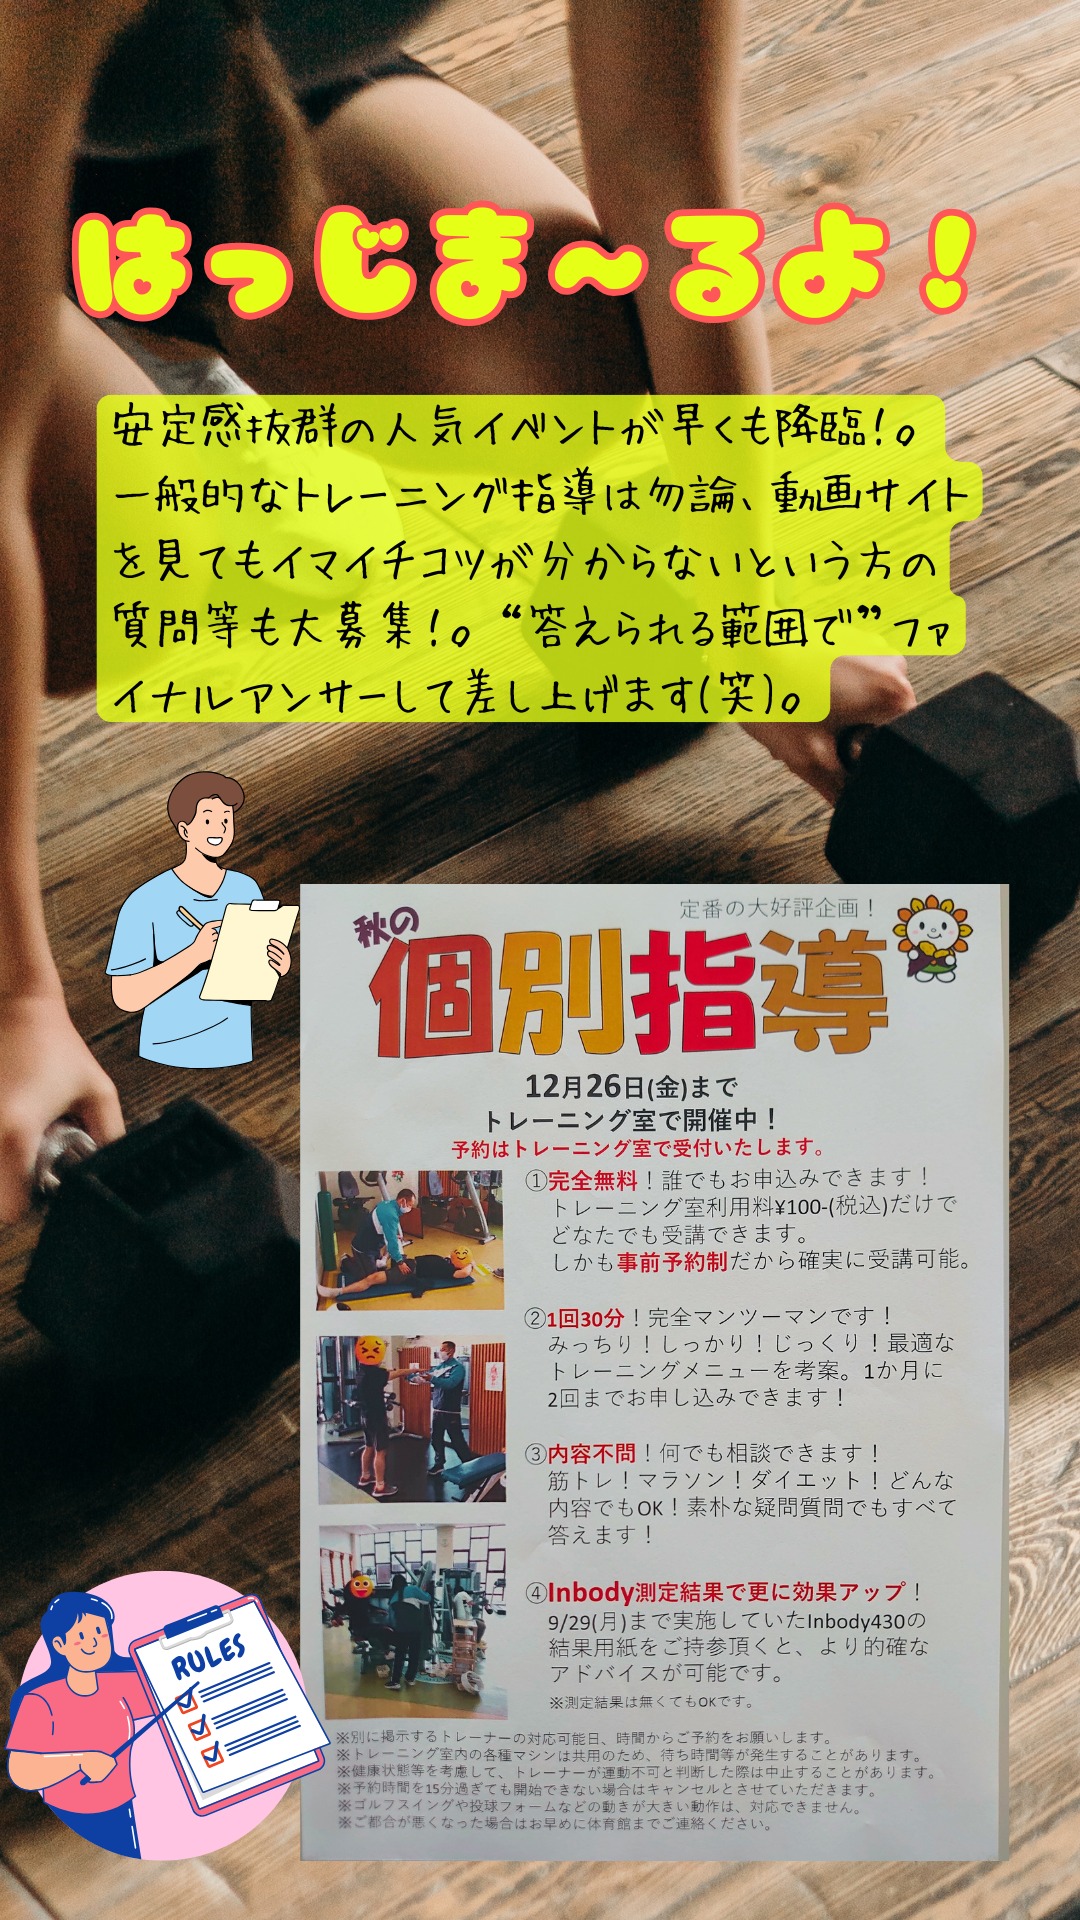 はっじま～るよ！
安定感抜群の人気イベントが早くも降臨！。
一般的なトレーニング指導は勿論、動画サイト
を見てもイマイチコツが分からないという方の
質問等も大募集！。“答えられる範囲で”ファ
イナルアンサーして差し上げます(笑)。
定番の大好評企画！
秋の
個別指導
12月26日(金)まで
トレーニング室で開催中！
予約はトレーニング室で受付いたします。
①完全無料！誰でもお申込みできます！
トレーニング室利用料¥100-(税込)だけで
どなたでも受講できます。
しかも事前予約制だから確実に受講可能。
②1回30分！完全マンツーマンです！
みっちり！しっかり！じっくり！最適な
トレーニングメニューを考案。1か月に
2回までお申し込みできます！
③内容不問！何でも相談できます！
筋トレ！マラソン！ダイエット！どんな
内容でもOK！素朴な疑問質問でもすべて
答えます！
④Inbody測定結果で更に効果アップ！
9/29(月)まで実施していたInbody430の
結果用紙をご持参頂くと、より的確な
アドバイスが可能です。
※測定結果は無くてもOKです。
RULES
※別に掲示するトレーナーの対応可能日、時間からご予約をお願いします。
※トレーニング室内の各種マシンは共用のため、待ち時間等が発生することがあります。
※健康状態等を考慮して、トレーナーが運動不可と判断した際は中止することがあります。
※予約時間を15分過ぎても開始できない場合はキャンセルとさせていただきます。
※ゴルフスイングや投球フォームなどの動きが大きい動作は、対応できません。
※ご都合が悪くなった場合はお早めに体育館までご連絡ください。